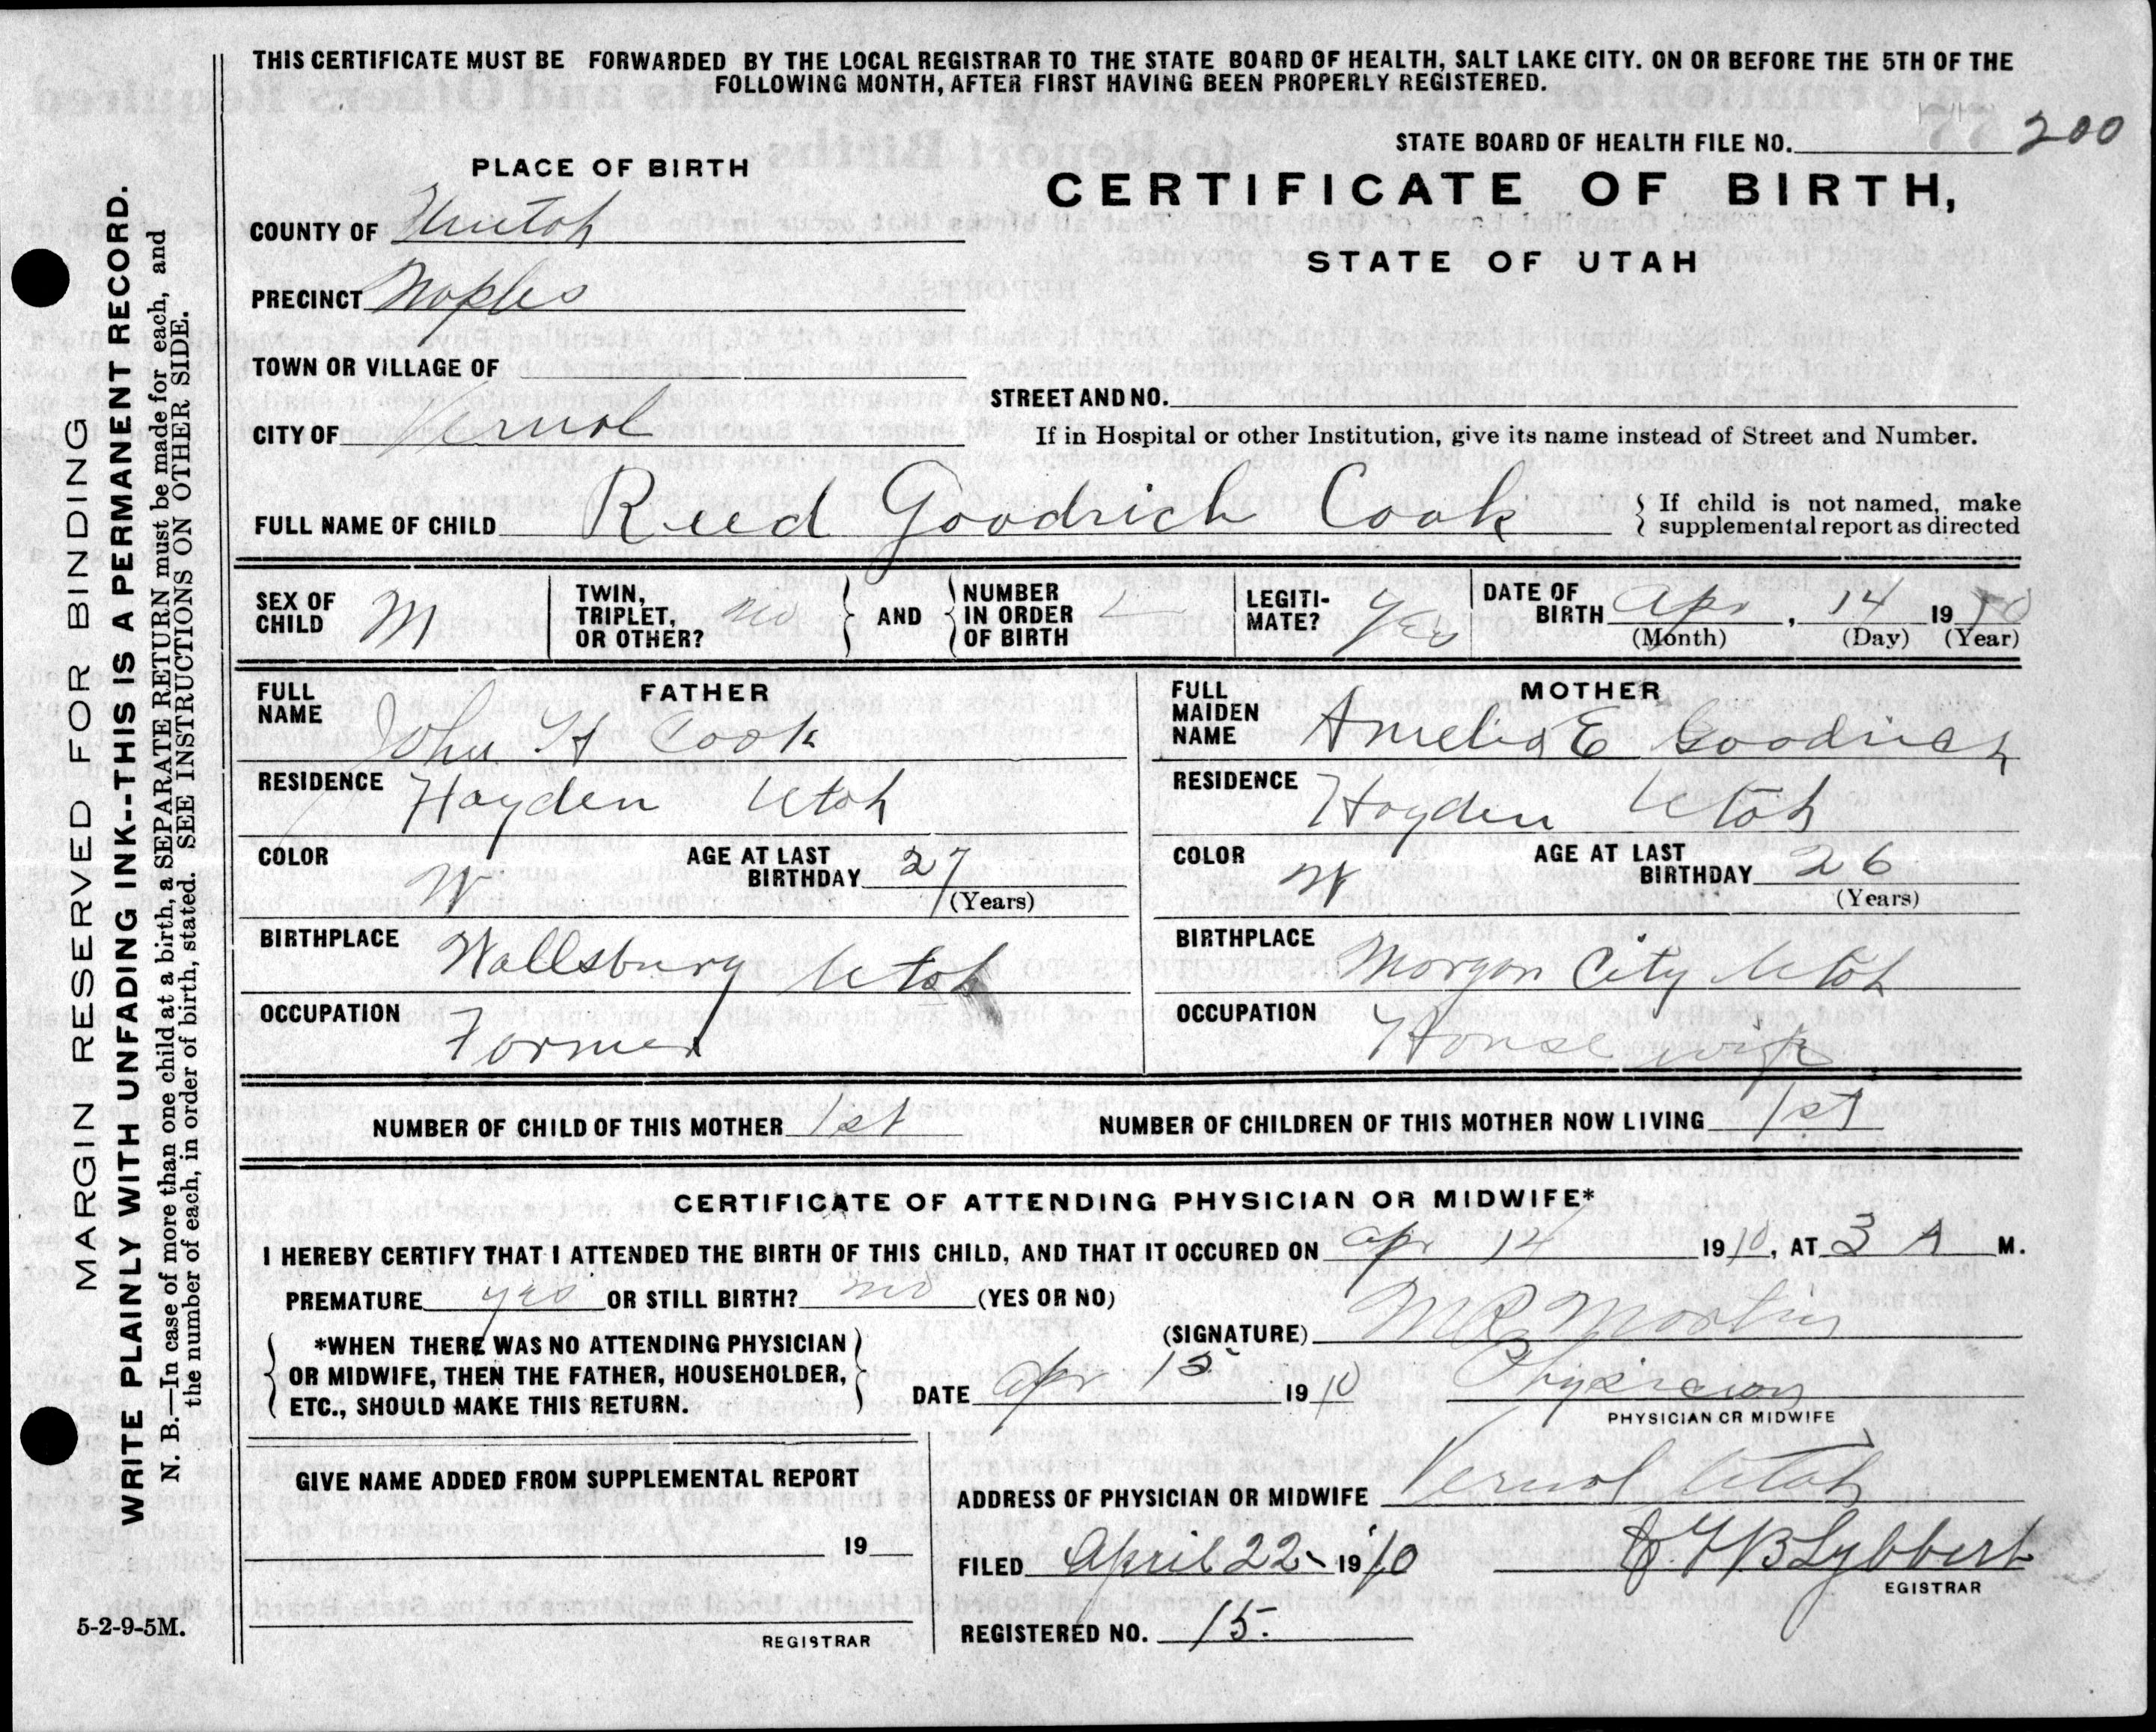 THIS CERTIFICATE MUST BE FORWARDED BY THE LOCAL REGISTRAR TO THE STATE BOARD OF HEALTH, SALT LAKE CITY. ON OR BEFORE THE 5TH OF THE
FOLLOWING MONTH, AFTER FIRST HAVING BEEN PROPERLY REGISTERED.
STATE BOARD OF HEALTH FILE NO. 200
PLACE OF BIRTH
CERTIFICATE OF BIRTH,
STATE OF UTAH
COUNTY OF Uintah
PRECINCT Naples
TOWN OR VILLAGE OF
STREET AND NO.
CITY OF Vernal
If in Hospital or other Institution, give its name instead of Street and Number.
FULL NAME OF CHILD Reed Goodrich Cook
If child is not named, make
supplemental report as directed
SEX OF CHILD M
TWIN, TRIPLET, OR OTHER? no
AND
NUMBER IN ORDER OF BIRTH
LEGITI-MATE? Yes
DATE OF BIRTH Apr, 14 1910
(Month) (Day) (Year)
FATHER
FULL NAME John H Cook
RESIDENCE Hayden Utah
COLOR W
AGE AT LAST BIRTHDAY 27
(Years)
BIRTHPLACE Wallsburg Utah
OCCUPATION Farmer
MOTHER
FULL MAIDEN NAME Amelia E Goodrich
RESIDENCE Hayden Utah
COLOR W
AGE AT LAST BIRTHDAY 26
(Years)
BIRTHPLACE Morgan City Utah
OCCUPATION House wife
NUMBER OF CHILD OF THIS MOTHER 1st
NUMBER OF CHILDREN OF THIS MOTHER NOW LIVING 1st
CERTIFICATE OF ATTENDING PHYSICIAN OR MIDWIFE*
I HEREBY CERTIFY THAT I ATTENDED THE BIRTH OF THIS CHILD, AND THAT IT OCCURED ON Apr 14 1910, AT 3 A M.
PREMATURE yes OR STILL BIRTH? no (YES OR NO)
*WHEN THERE WAS NO ATTENDING PHYSICIAN
OR MIDWIFE, THEN THE FATHER, HOUSEHOLDER,
ETC., SHOULD MAKE THIS RETURN.
(SIGNATURE) Martin
DATE Apr 15 1910
Physician
PHYSICIAN OR MIDWIFE
GIVE NAME ADDED FROM SUPPLEMENTAL REPORT
19
REGISTRAR
ADDRESS OF PHYSICIAN OR MIDWIFE Vernal Utah
FILED April 22 1910
Lybbert
EGISTRAR
REGISTERED NO. 15.
MARGIN RESERVED FOR BINDING
WRITE PLAINLY WITH UNFADING INK--THIS IS A PERMANENT RECORD.
N. B.—In case of more than one child at a birth, a SEPARATE RETURN must be made for each, and
the number of each, in order of birth, stated. SEE INSTRUCTIONS ON OTHER SIDE.
5-2-9-5M.